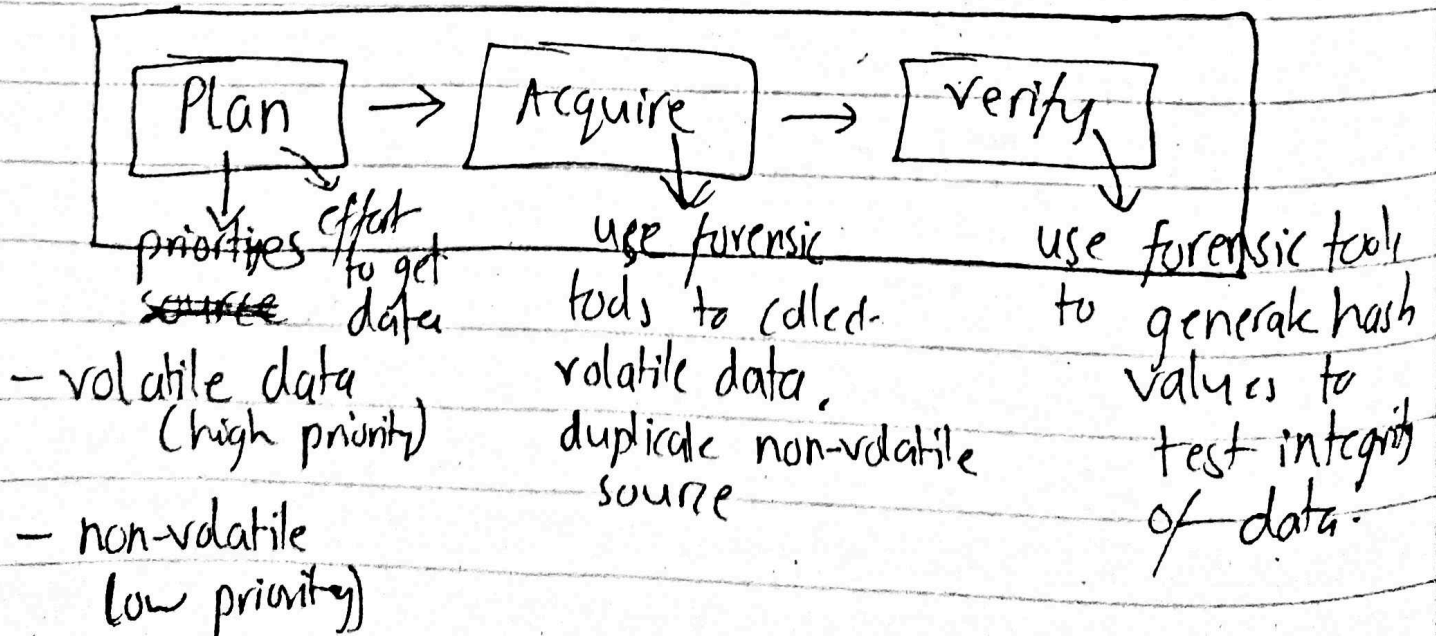 Plan → Acquire → Verify
priortizes effort
to get
source data
- volatile data
(high priority)
- non-volatile
(low priority)
use forensic
tools to collect
volatile data,
duplicate non-volatile
source
use forensic tools
to generate hash
values to
test integrity
of data.